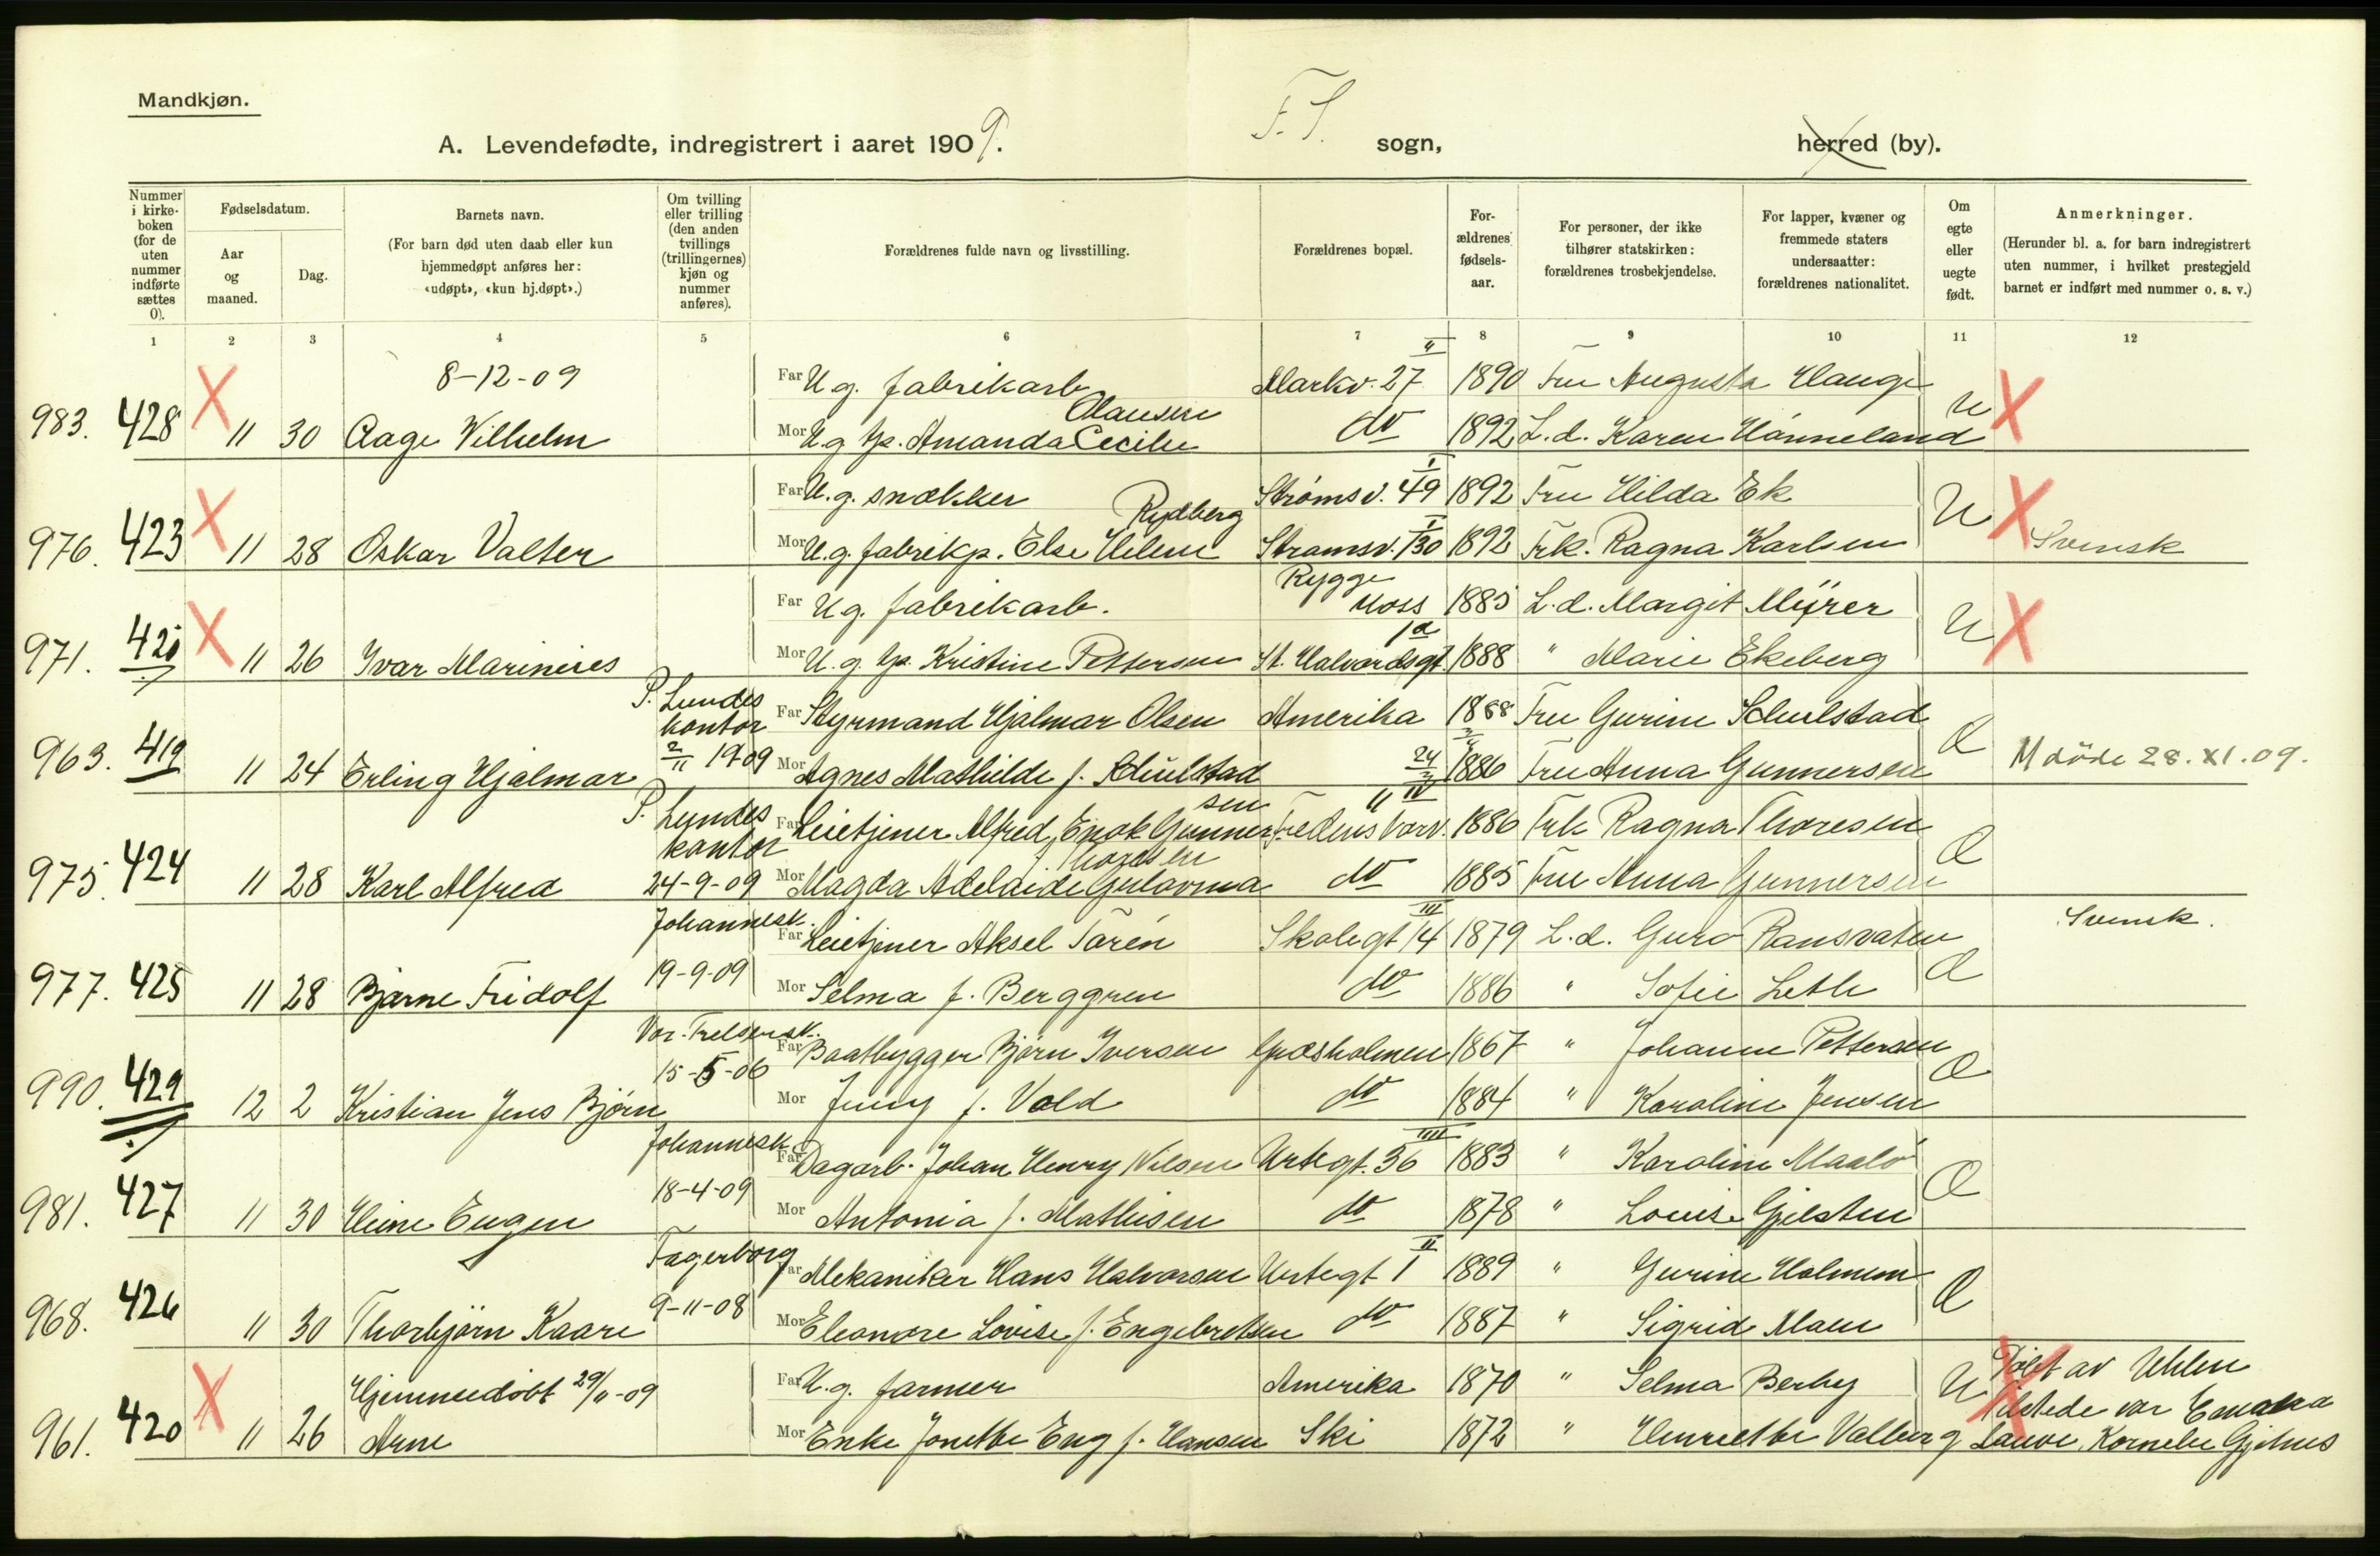 Mandkjøn.
A. Levendefødte, indregistrert i aaret 1909.
F. S. sogn,
herred (by).
Nummer i kirke-boken (for de uten nummer indførte sættes 0).
Fødselsdatum.
Aar og maaned.
Dag.
Barnets navn.
(For barn død uten daab eller kun hjemmedøpt anføres her: «udøpt», «kun hj.døpt».)
Om tvilling eller trilling (den anden tvillings (trillingernes) kjøn og nummer anføres).
Forældrenes fulde navn og livsstilling.
Forældrenes bopæl.
For-ældrenes fødsels-aar.
For personer, der ikke tilhører statskirken: forældrenes trosbekjendelse.
For lapper, kvæner og fremmede staters undersaatter: forældrenes nationalitet.
Om egte eller uegte født.
Anmerkninger.
(Herunder bl. a. for barn indregistrert uten nummer, i hvilket prestegjeld barnet er indført med nummer o. s. v.)
1 2 3 4 5 6 7 8 9 10 11 12
8-12-09 Far U.g. fabrikarb. Markv. 27 II 1890 Fru Augusta Hauge
Olausen
983. 428 X 11 30 Aage Wilhelm Mor U.g. tj. Amanda Cecilie do 1892 L.d. Karen Hånneland U X
Far U.g. snekker Strømsv. 49 I 1892 Fru Hilda Ek
Rydberg
976. 423 X 11 28 Oskar Valter Mor U.g. fabrikp. Else Helene Strømsv. 130 I 1892 Frk. Ragna Karlsen U X Svensk
Rygge
Far U.g. fabrikarb. Moss 1885 L.d. Margit Mÿrer
971. 421 X 11 26 Ivar Marinius Mor U.g. tj. Kristine Pettersen St. Halvardsgt. 1a 1888 " Marie Ekeberg U X
P. Lundes kontor
Far Styrmand Hjalmar Olsen Amerika 1888 Fru Gurine Schulstad
963. 419 11 24 Erling Hjalmar 2/11 1909 Mor Agnes Mathilde f. Schulstad 24 1886 Fru Anna Gunnersen Æ M døde 28.XI.09.
P. Lundes kontor
Far Leietjener Alfred Enok Gunnersen Fredensborv. 11 IV 1886 Frk Ragna Thoresen
Thoresen
975. 424 11 28 Karl Alfred 24-9-09 Mor Magda Adelaide Gulovma do 1885 Fru Anna Gunnersen Æ
Johannesk.
Far Leietjener Aksel Tarén Skolegt 14 III 1879 L.d. Guro Ransvaten Svensk.
977. 425 11 28 Bjarne Fridolf 19-9-09 Mor Selma f. Berggren do 1886 " Sofie Leth Æ
Vor. Frelsersk.
Far Baatbygger Bjørn Iversen Græsholmen 1867 " Johanne Pettersen
990. 429 12 2 Kristian Jens Bjørn 15-5-06 Mor Jenny f. Vold do 1884 " Karoline Jensen Æ
Johannesk
Far Dagarb. Johan Henry Nilsen Urtegt. 36 IIII 1883 " Karoline Maalø
981. 427 11 30 Heine Eugen 18-4-09 Mor Antonia f. Mathisen do 1878 " Louise Gjelsten Æ
Fagerborg
Far Mekaniker Hans Halvorsen Urtegt 1 II 1889 " Gurine Holmen
968. 426 11 30 Thorbjørn Kaare 9-11-08 Mor Eleonore Lovise f. Engebretsen do 1887 " Sigrid Moen Æ
Hjemmedøbt 29/11-09 Far U.g. farmer Amerika 1870 " Selma Berby U Døbt av Uhlen
961. 420 X 11 26 Arne Mor Enke Jonette Eng f. Hansen Ski 1872 " Henriette Valberg
Tilstede var
Kornelie Gjehus